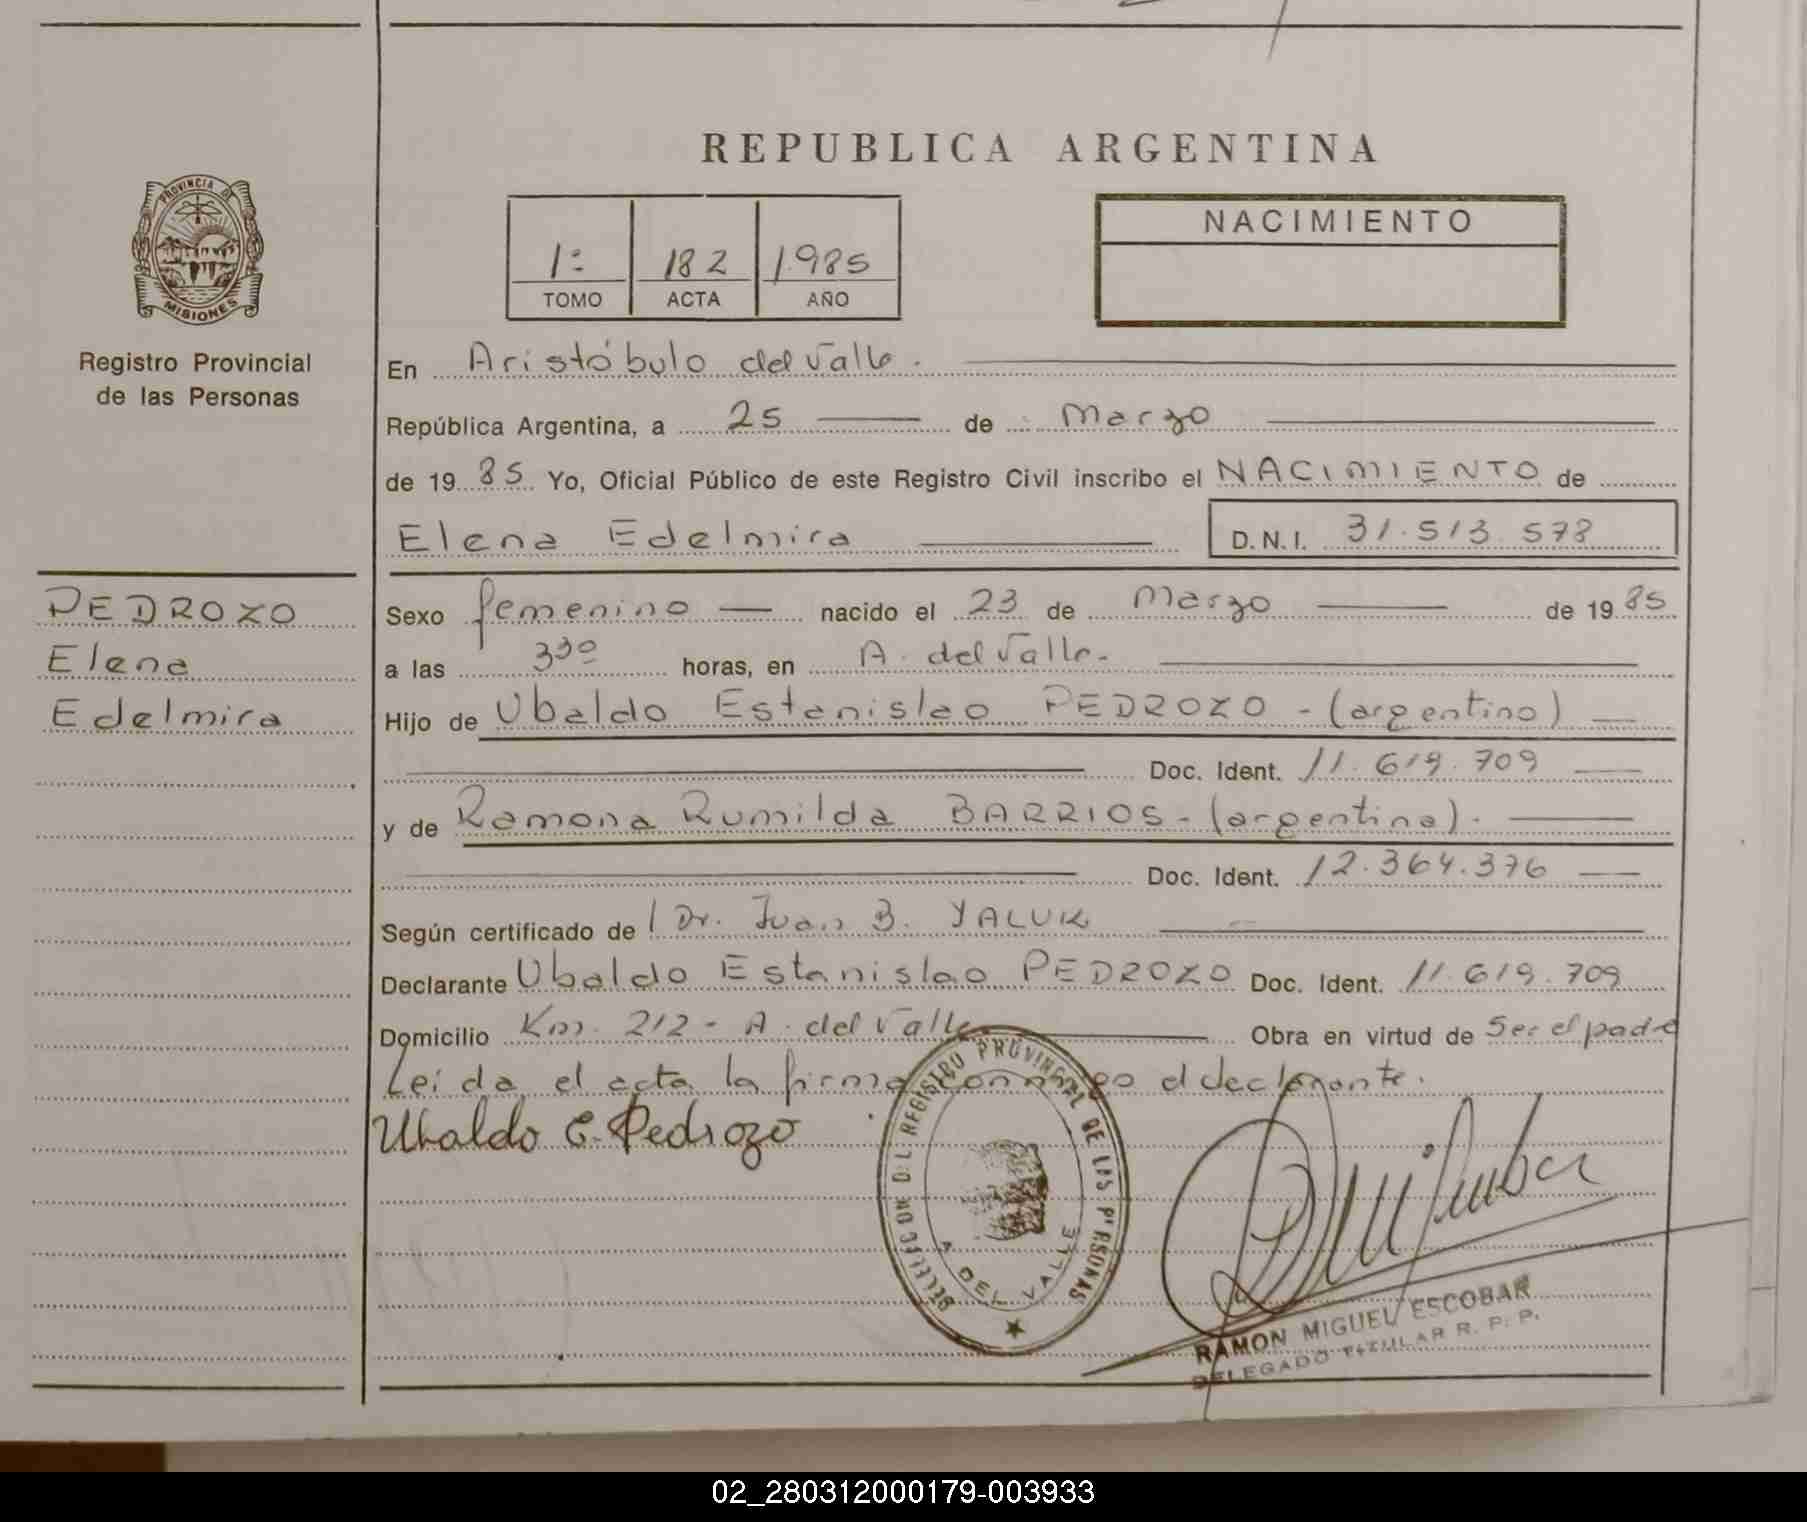 REPUBLICA ARGENTINA
PROVINCIA DE
MISIONES
Registro Provincial
de las Personas
1º 182 1985
TOMO ACTA AÑO
NACIMIENTO
En Aristóbulo del Valle.
República Argentina, a 25 de Marzo
de 1985 Yo, Oficial Público de este Registro Civil inscribo el NACIMIENTO de
Elena Edelmira D.N.I. 31.513.578
PEDROZO
Elena
Edelmira
Sexo femenino nacido el 23 de Marzo de 1985
a las 3³⁰ horas, en A. del Valle.
Hijo de Ubaldo Estanislao PEDROZO - (argentino)
Doc. Ident. 11.619.709
y de Ramona Rumilda BARRIOS - (argentina).
Doc. Ident. 12.364.376
Según certificado de Dr. Juan B. YALUK
Declarante Ubaldo Estanislao PEDROZO Doc. Ident. 11.619.709
Domicilio Km. 212 - A. del Valle Obra en virtud de Ser el padre
Leída el acta la firma conmigo el declarante.
Ubaldo E. Pedrozo
DELEGACION DEL REGISTRO PROVINCIAL DE LAS PERSONAS
A. DEL VALLE
RAMON MIGUEL ESCOBAR
DELEGADO TITULAR R. P. P.
02_280312000179-003933